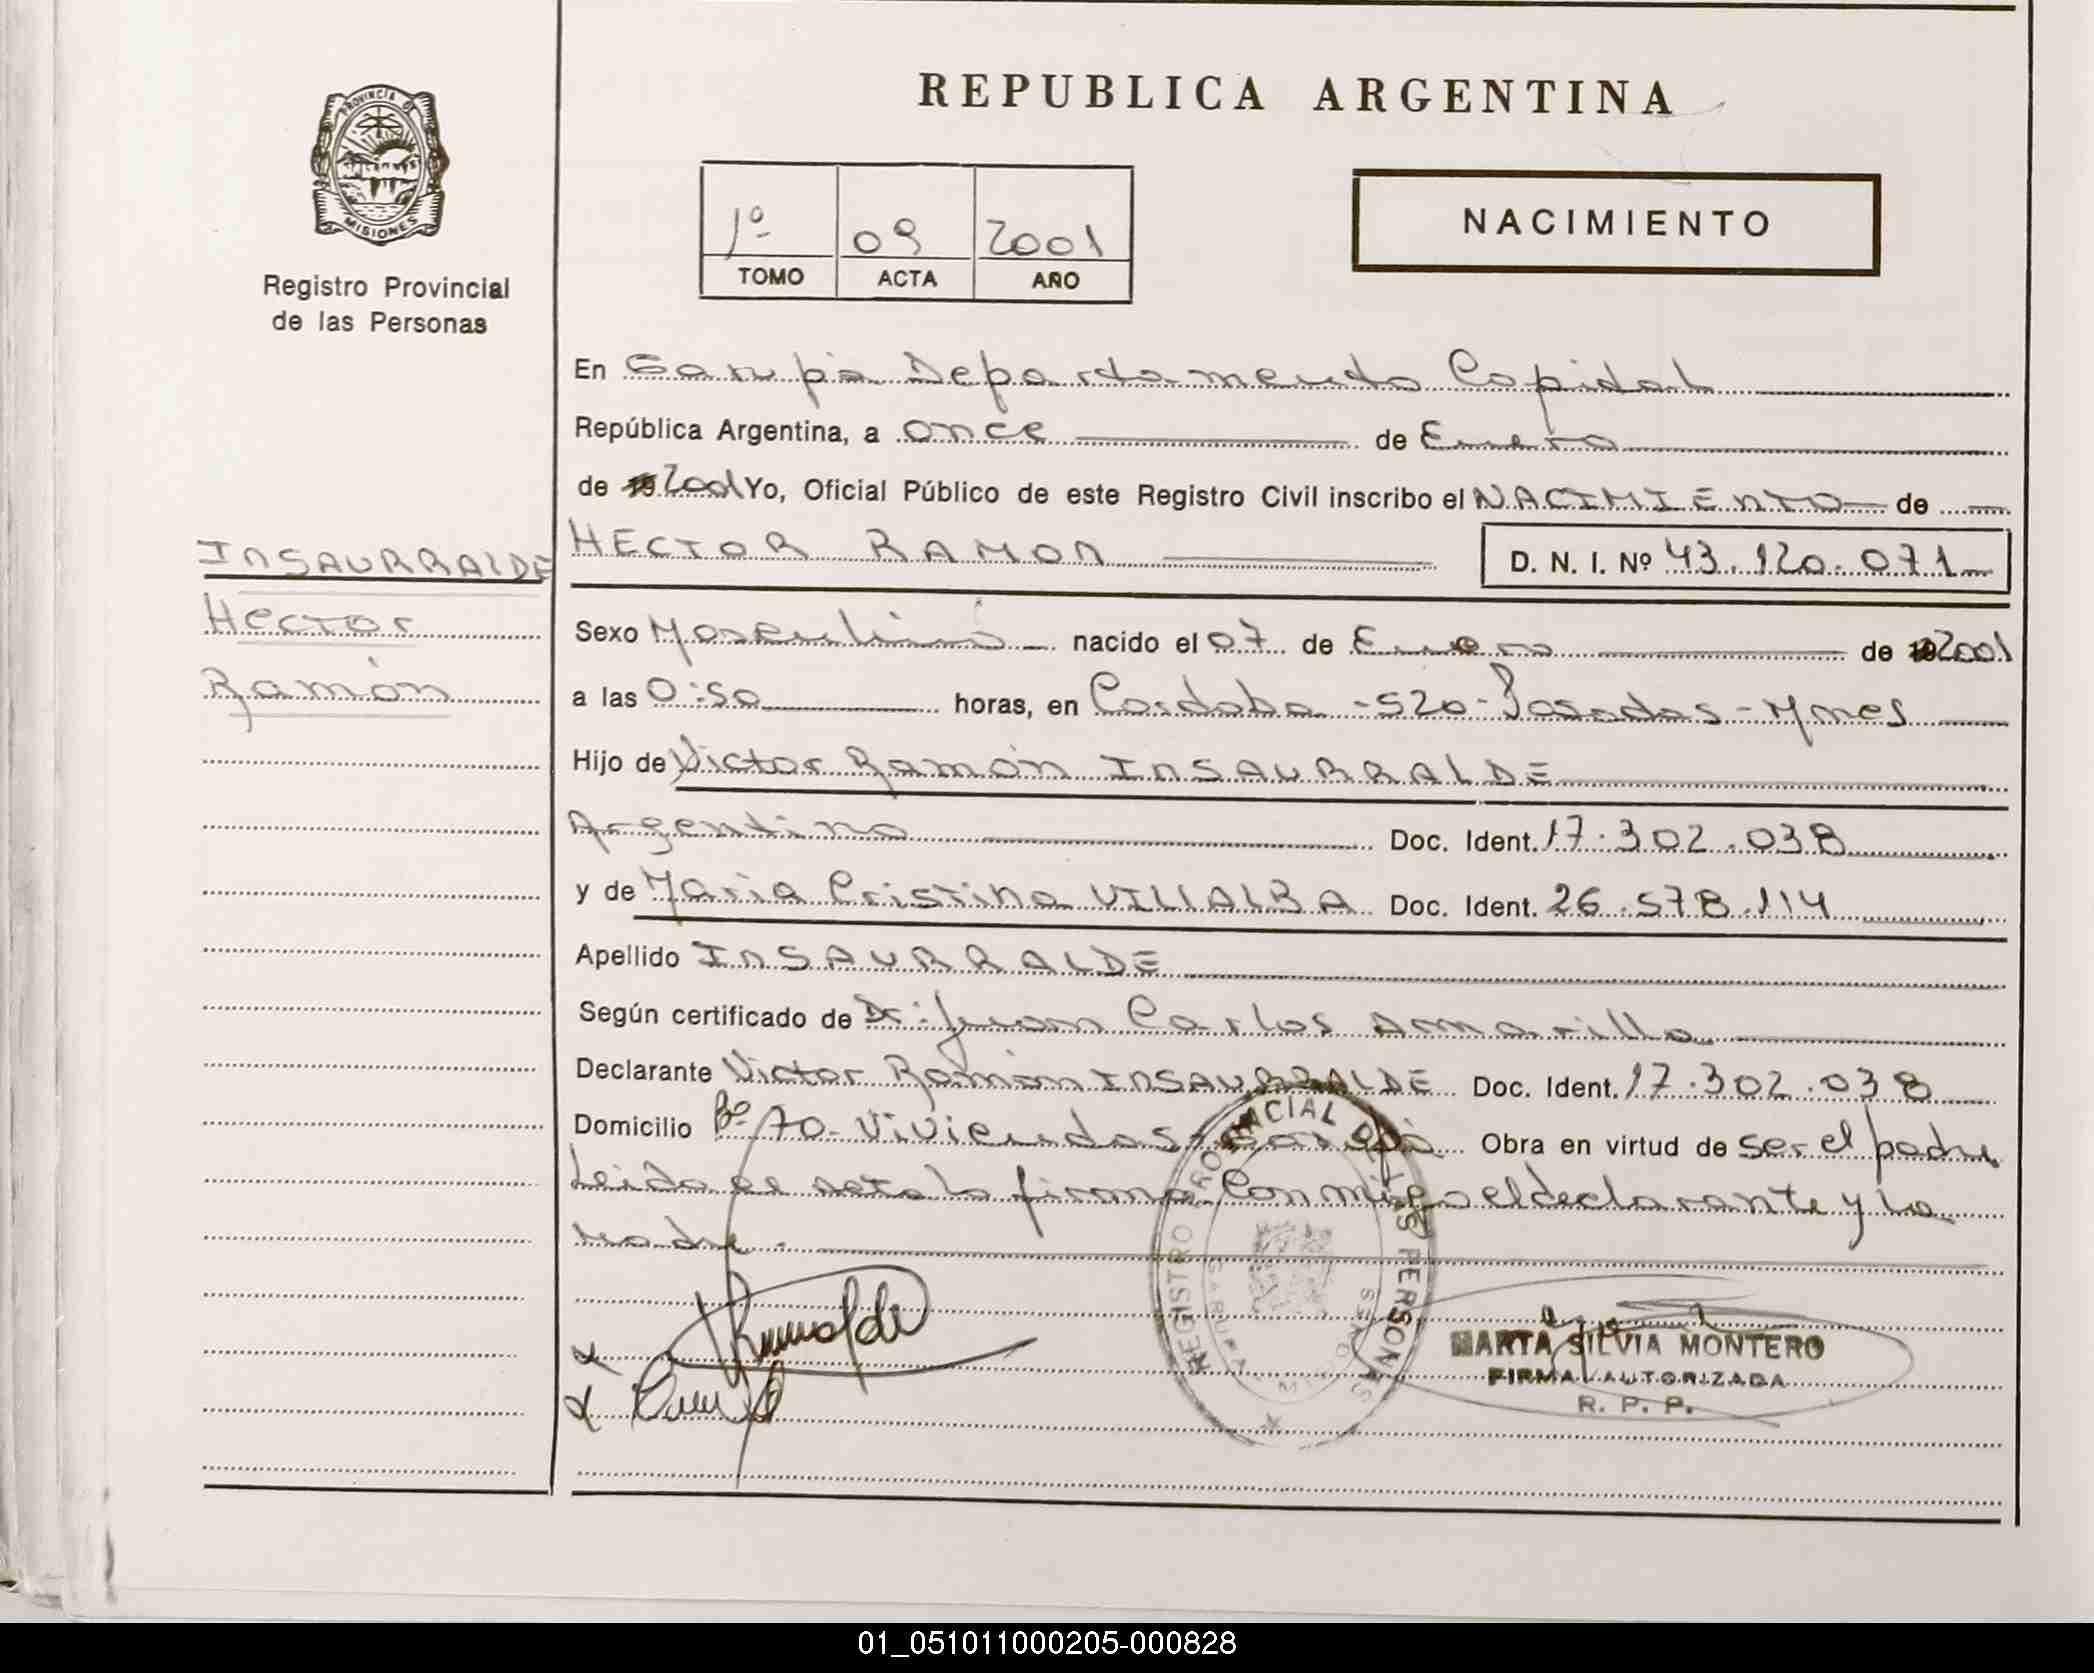 REPUBLICA ARGENTINA
PROVINCIA D
MISIONES
Registro Provincial
de las Personas
1º 09 2001
TOMO ACTA AÑO
NACIMIENTO
En Garupá Departamento Capital
República Argentina, a once de Enero
de 19 2001 Yo, Oficial Público de este Registro Civil inscribo el NACIMIENTO de
HECTOR RAMON D. N. I. Nº 43.120.071
INSAURRALDE
Hector
Ramón
Sexo Masculino nacido el 07 de Enero de 19 2001
a las 0:50 horas, en Cordoba - 520 - Posadas - Mnes
Hijo de Victor Ramón INSAURRALDE
Argentino Doc. Ident. 17.302.038
y de Maria Cristina VILLALBA Doc. Ident. 26.578.114
Apellido INSAURRALDE
Según certificado de Dr: Juan Carlos Amarilla
Declarante Victor Ramón INSAURRALDE Doc. Ident. 17.302.038
Domicilio Bº 70 Viviendas - Garupá Obra en virtud de ser el padre
Leida el acta la firma Conmigo el declarante y la
madre.
REGISTRO PROVINCIAL DE LAS PERSONAS
GARUPA MISIONES
MARTA SILVIA MONTERO
FIRMA AUTORIZADA
R. P. P.
01_051011000205-000828